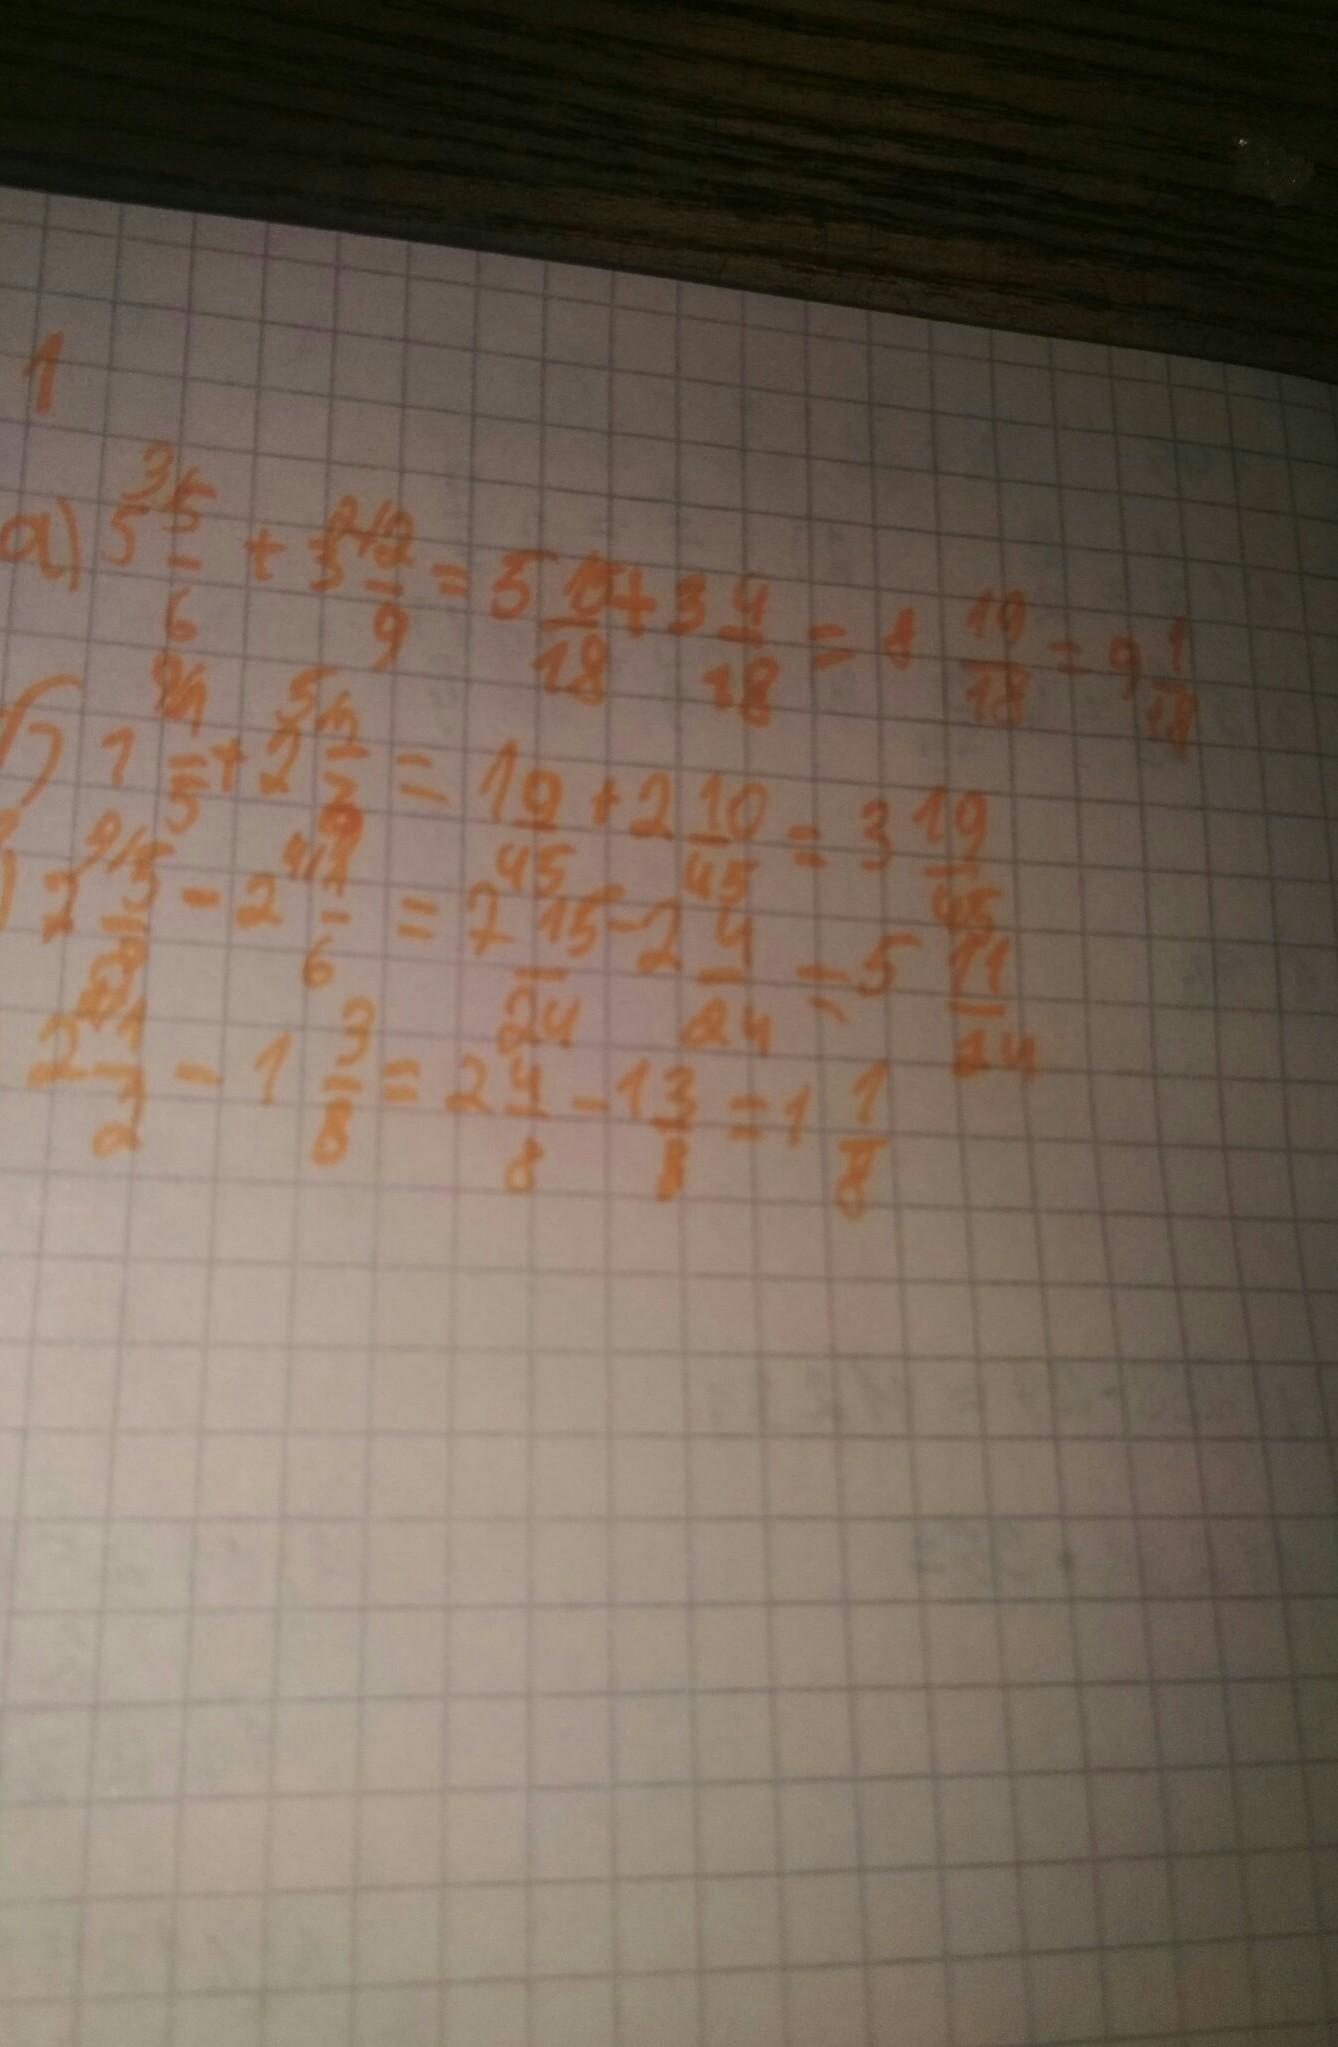 1
а) 5 3/5/6 + 3 2/2/9 = 5 15/18 + 3 4/18 = 8 19/18 = 9 1/18
б) 1 9/1/5 + 2 5/2/9 = 1 9/45 + 2 10/45 = 3 19/45
) 2 5/8 - 2 4/1/6 = 7 15/24 - 2 4/24 = 5 11/24
2 1/2 - 1 3/8 = 2 4/8 - 1 3/8 = 1 1/8